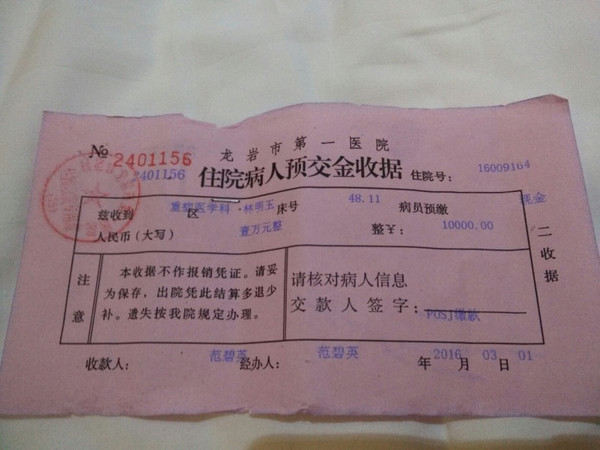 龙岩市第一医院
№ 2401156
2401156
住院病人预交金收据 住院号: 16009164
兹收到 重症医学科 区 林明玉 床号 48.11 病员预缴 现金
人民币(大写) 壹万元整 整¥: 10000.00
二收据
注意
本收据不作报销凭证。请妥
为保存,出院凭此结算多退少
补。遗失按我院规定办理。
请核对病人信息
交款人签字: POSJ缴款
收款人: 范碧英 经办人: 范碧英 2016 年 03 月 01 日